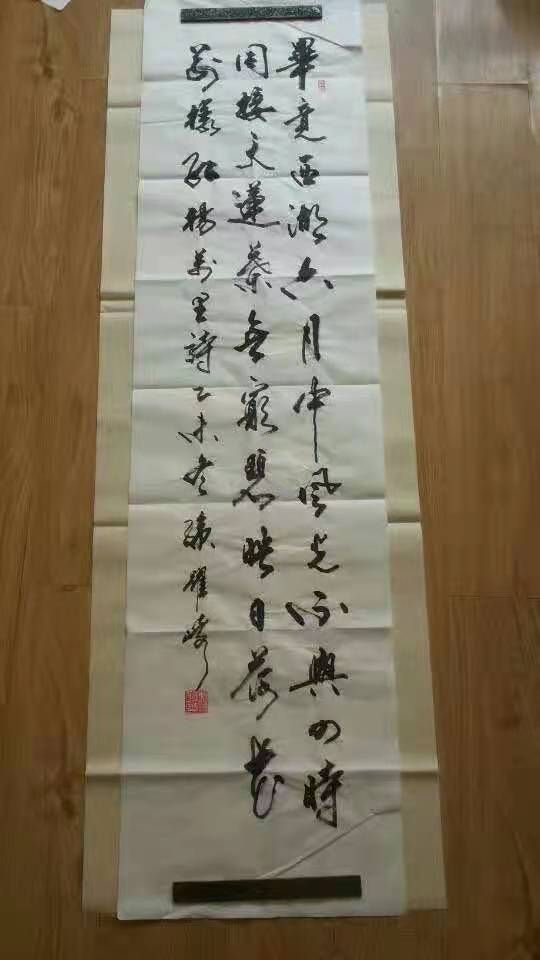 畢竟西湖六月中風光不與四時
同接天蓮葉無窮碧映日荷花
別樣紅楊萬里詩乙未冬耀